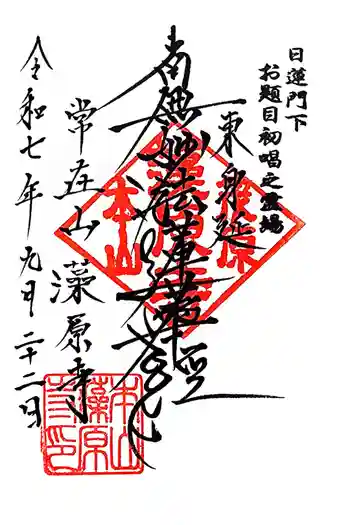 日蓮門下
お題目初唱之霊場
東身延
南無妙法蓮華経
常在山 藻原寺
令和七年九月二十二日
本山
藻原